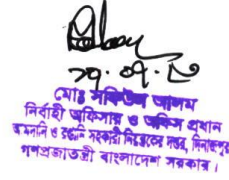 ২৭.০৭.১০
মোঃ সফিউল আলম
নির্বাহী অফিসার ও অফিস প্রধান
আমদানি ও রপ্তানি সহকারী নিয়ন্ত্রকের দপ্তর, দিনাজপুর
গণপ্রজাতন্ত্রী বাংলাদেশ সরকার।